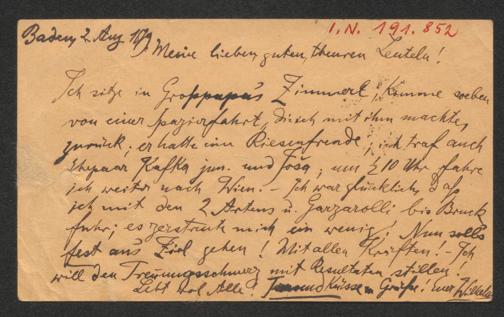 Baden, 2. Aug 1879
I.N. 191.852
Meine lieben, guten, theuren Leuteln!
Ich sitze in Grosspapa's Zimmerl; komme soeben
von einer Spazierfahrt, die ich mit ihm machte,
zurück; er hatte eine Riesenfreude; ich traf auch
Ehepaar Kafka jun. und ; um ½ 10 Uhr fahre
ich weiter nach Wien. – Ich war glücklich, daß
ich mit den 2 u. Garzarolli bis Bruck
fuhr; es zerstreute mich ein wenig. Nun solls
fest aufs Ziel gehen! Mit allen Kräften! – Ich
will den Trennungsschmerz mit Resultaten stillen.
Lebt wol Alle! Tausend Küsse u Grüße! Euer